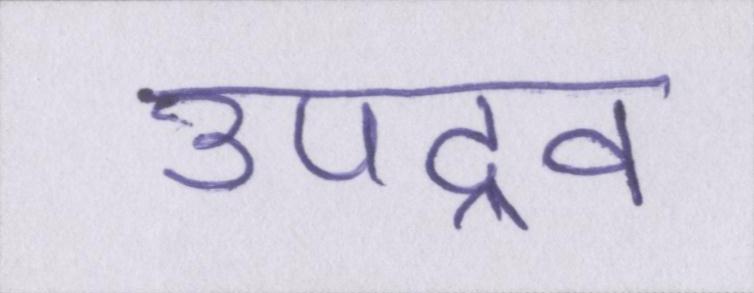 उपद्रव